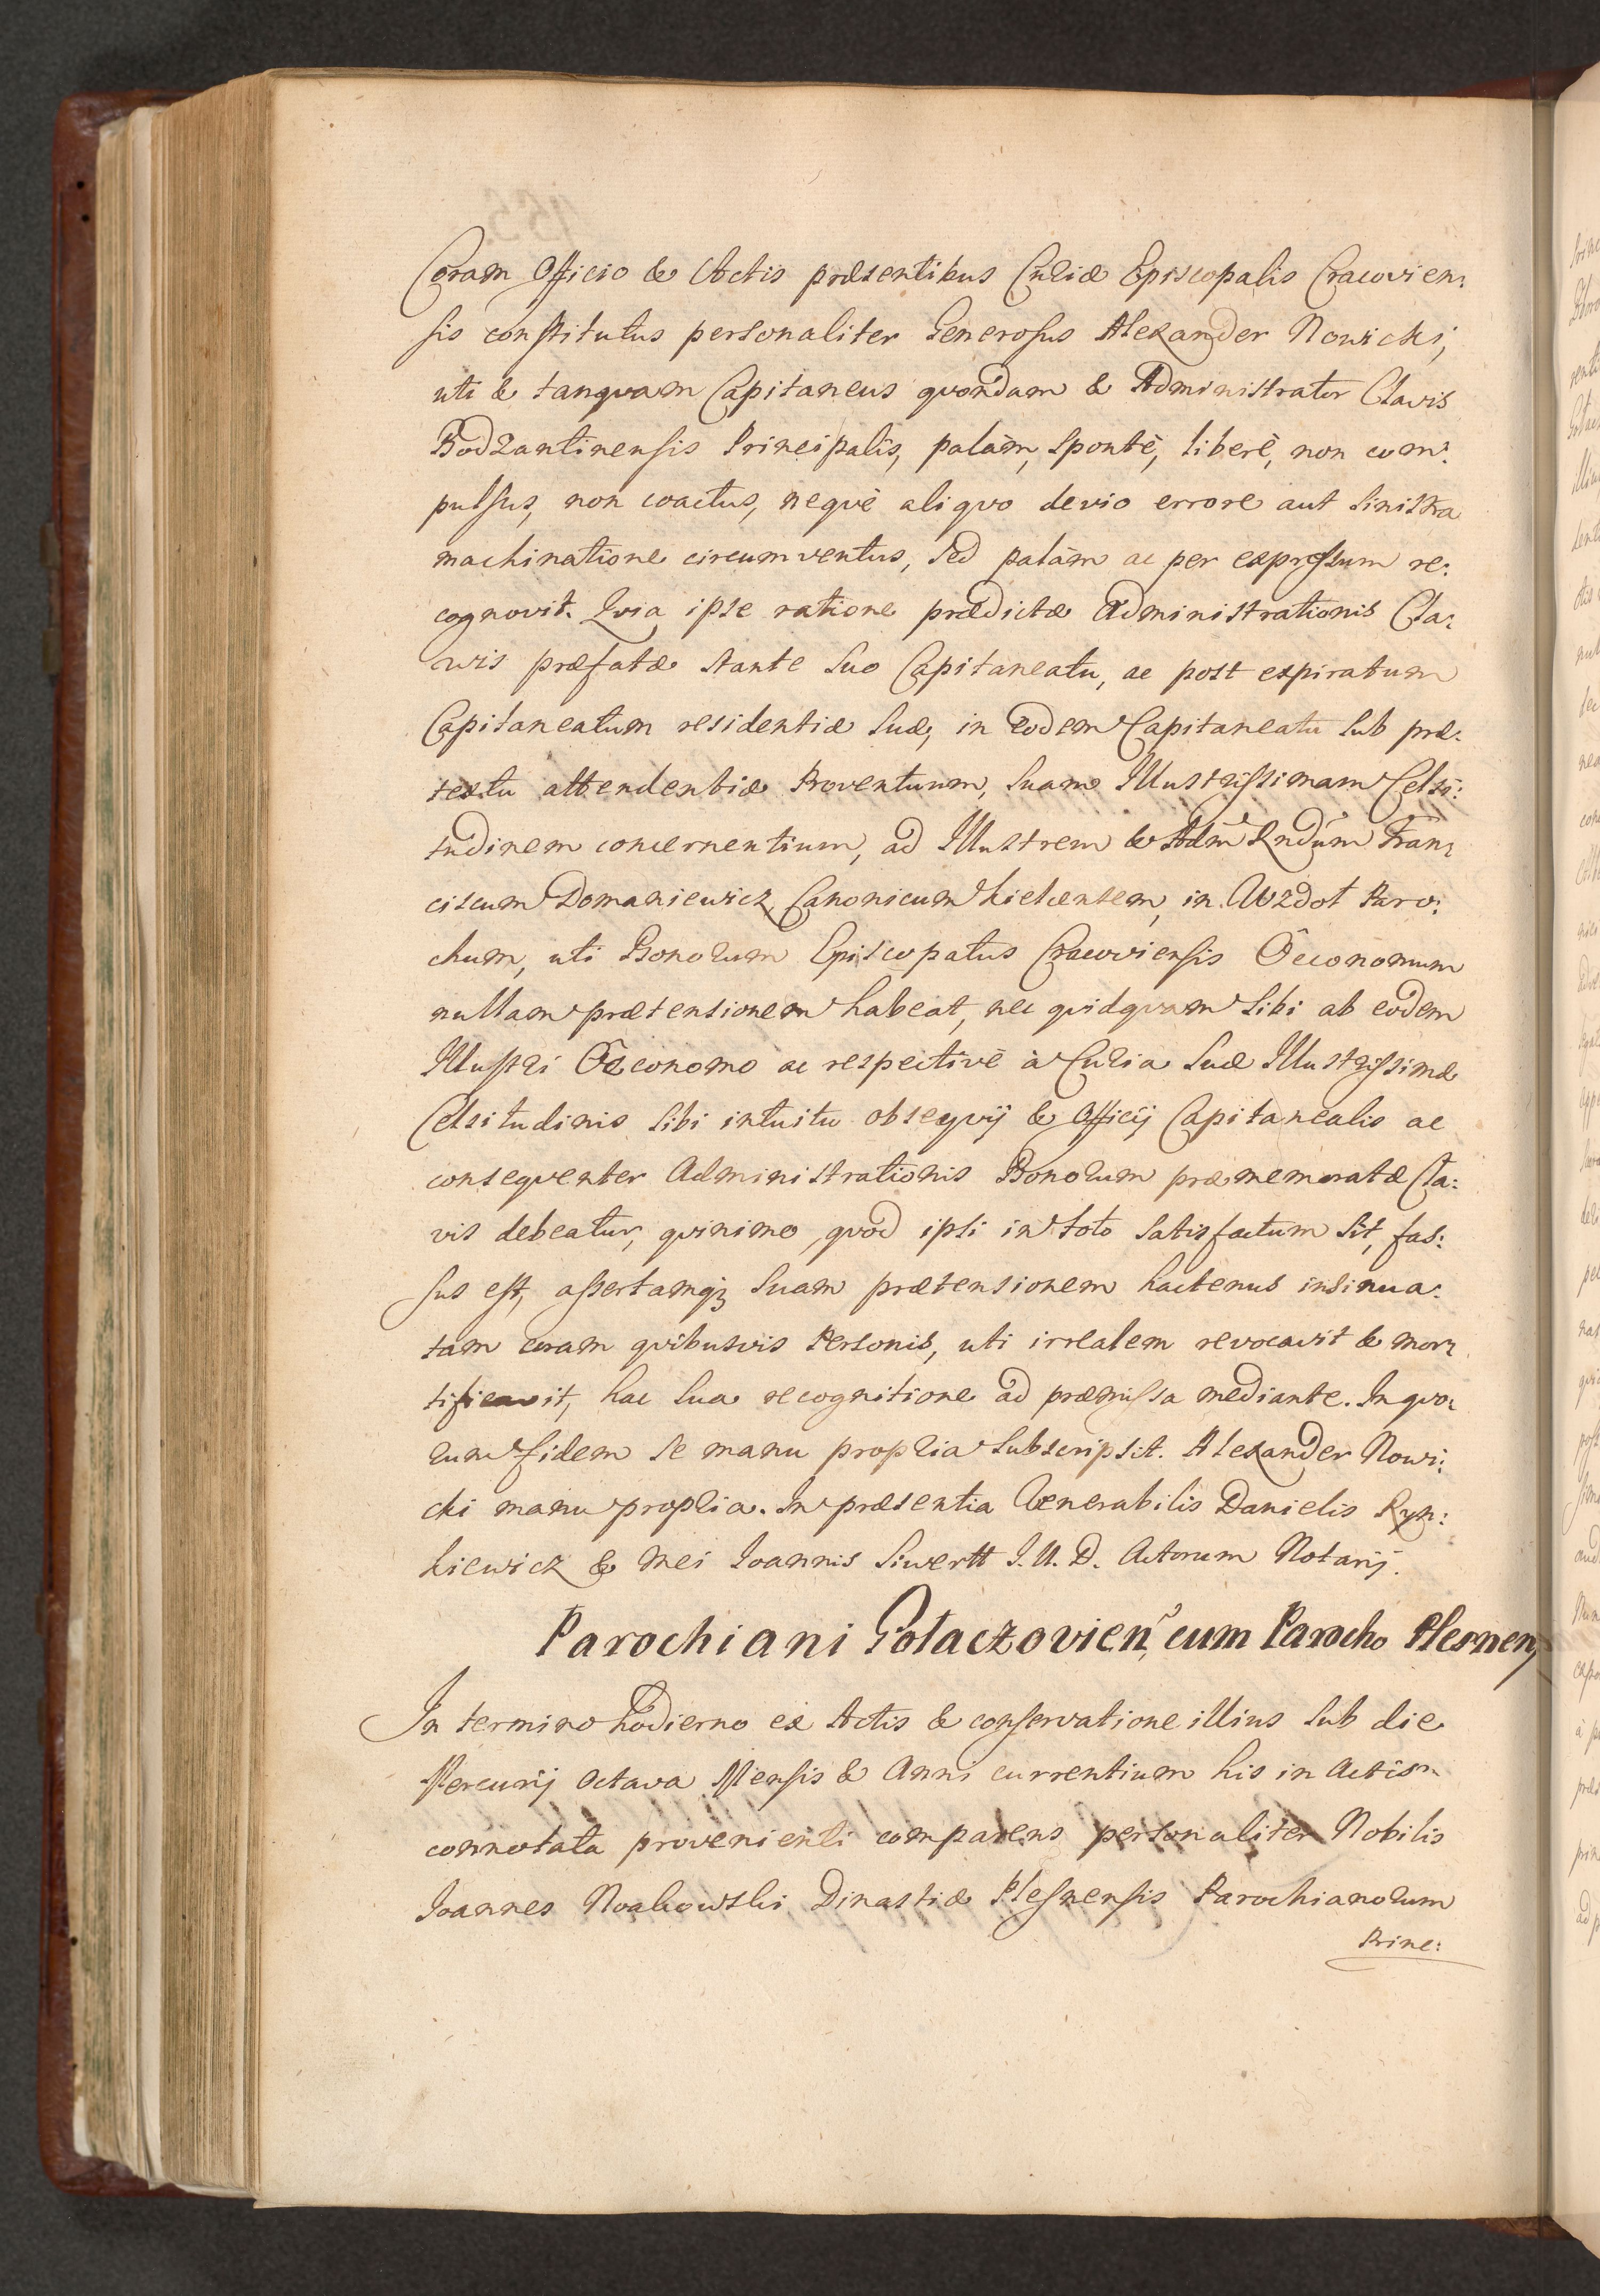 Coram Officio & Actis præsentibus Curiæ Episcopalis Cracovien:
sis constitutus personaliter Generosus Alexander Nowicki,
uti & tanqvam Capitaneus qvondam & Administrator Clavis
Bodzantinensis Principalis, palàm, spontè, liberè, non com:
pulsus, non coactus, neqvè aliqvo devio errore aut sinistra
machinatione circumventus, sed palàm ac per expressum re:
cognovit. Qvia ipse ratione prædictæ Administrationis Cla:
vis præfatæ stante suo Capitaneatu, ac post expiratum
Capitaneatum residentiæ suæ, in eodem Capitaneatu sub præ:
textu attendentiæ Proventuum, suam Illustrissimam Celsi:
tudinem concernentium, ad Illustrem & Adm Rndum Fran:
ciscum Domaniewicz Canonicum Kielcensem, in Wzdoł Paro:
chum, uti Bonorum Episcopatus Cracoviensis Oeconomum
nullam prætensionem habeat, nec qvidqvam sibi ab eodem
Illustri Oeconomo ac respectivè à Curia suæ Illustrissimæ
Celsitudinis sibi intuitu obseqvij & Officij Capitanealis ac
conseqventer Administrationis Bonorum præmemoratæ Cla:
vis debeatur, qvinimo, qvod ipsi in toto satisfactum sit, fas:
sus est, assertamq; suam prætensionem hactenus insinua:
tam coram qvibusvis Personis, uti irrealem revocavit & mor:
tificavit, hac sua recognitione ad præmissa mediante. In qvo:
rum fidem se manu propria subscripsit. Alexander Nowi:
cki manu propria. In præsentia Venerabilis Danielis Ryn:
kiewicz & mei Joannis Siwertt J. U. D. Actorum Notarij.
Parochiani Gołaczovien, cum Parocho Plesnen,
In termino hodierno ex Actis & conservatione illius sub die
Mercurij octava Mensis & Anni currentium his in Actis
connotata provenienti comparens personaliter Nobilis
Joannes Noakowski Dinastiæ Plesnensis Parochianorum
Princ: